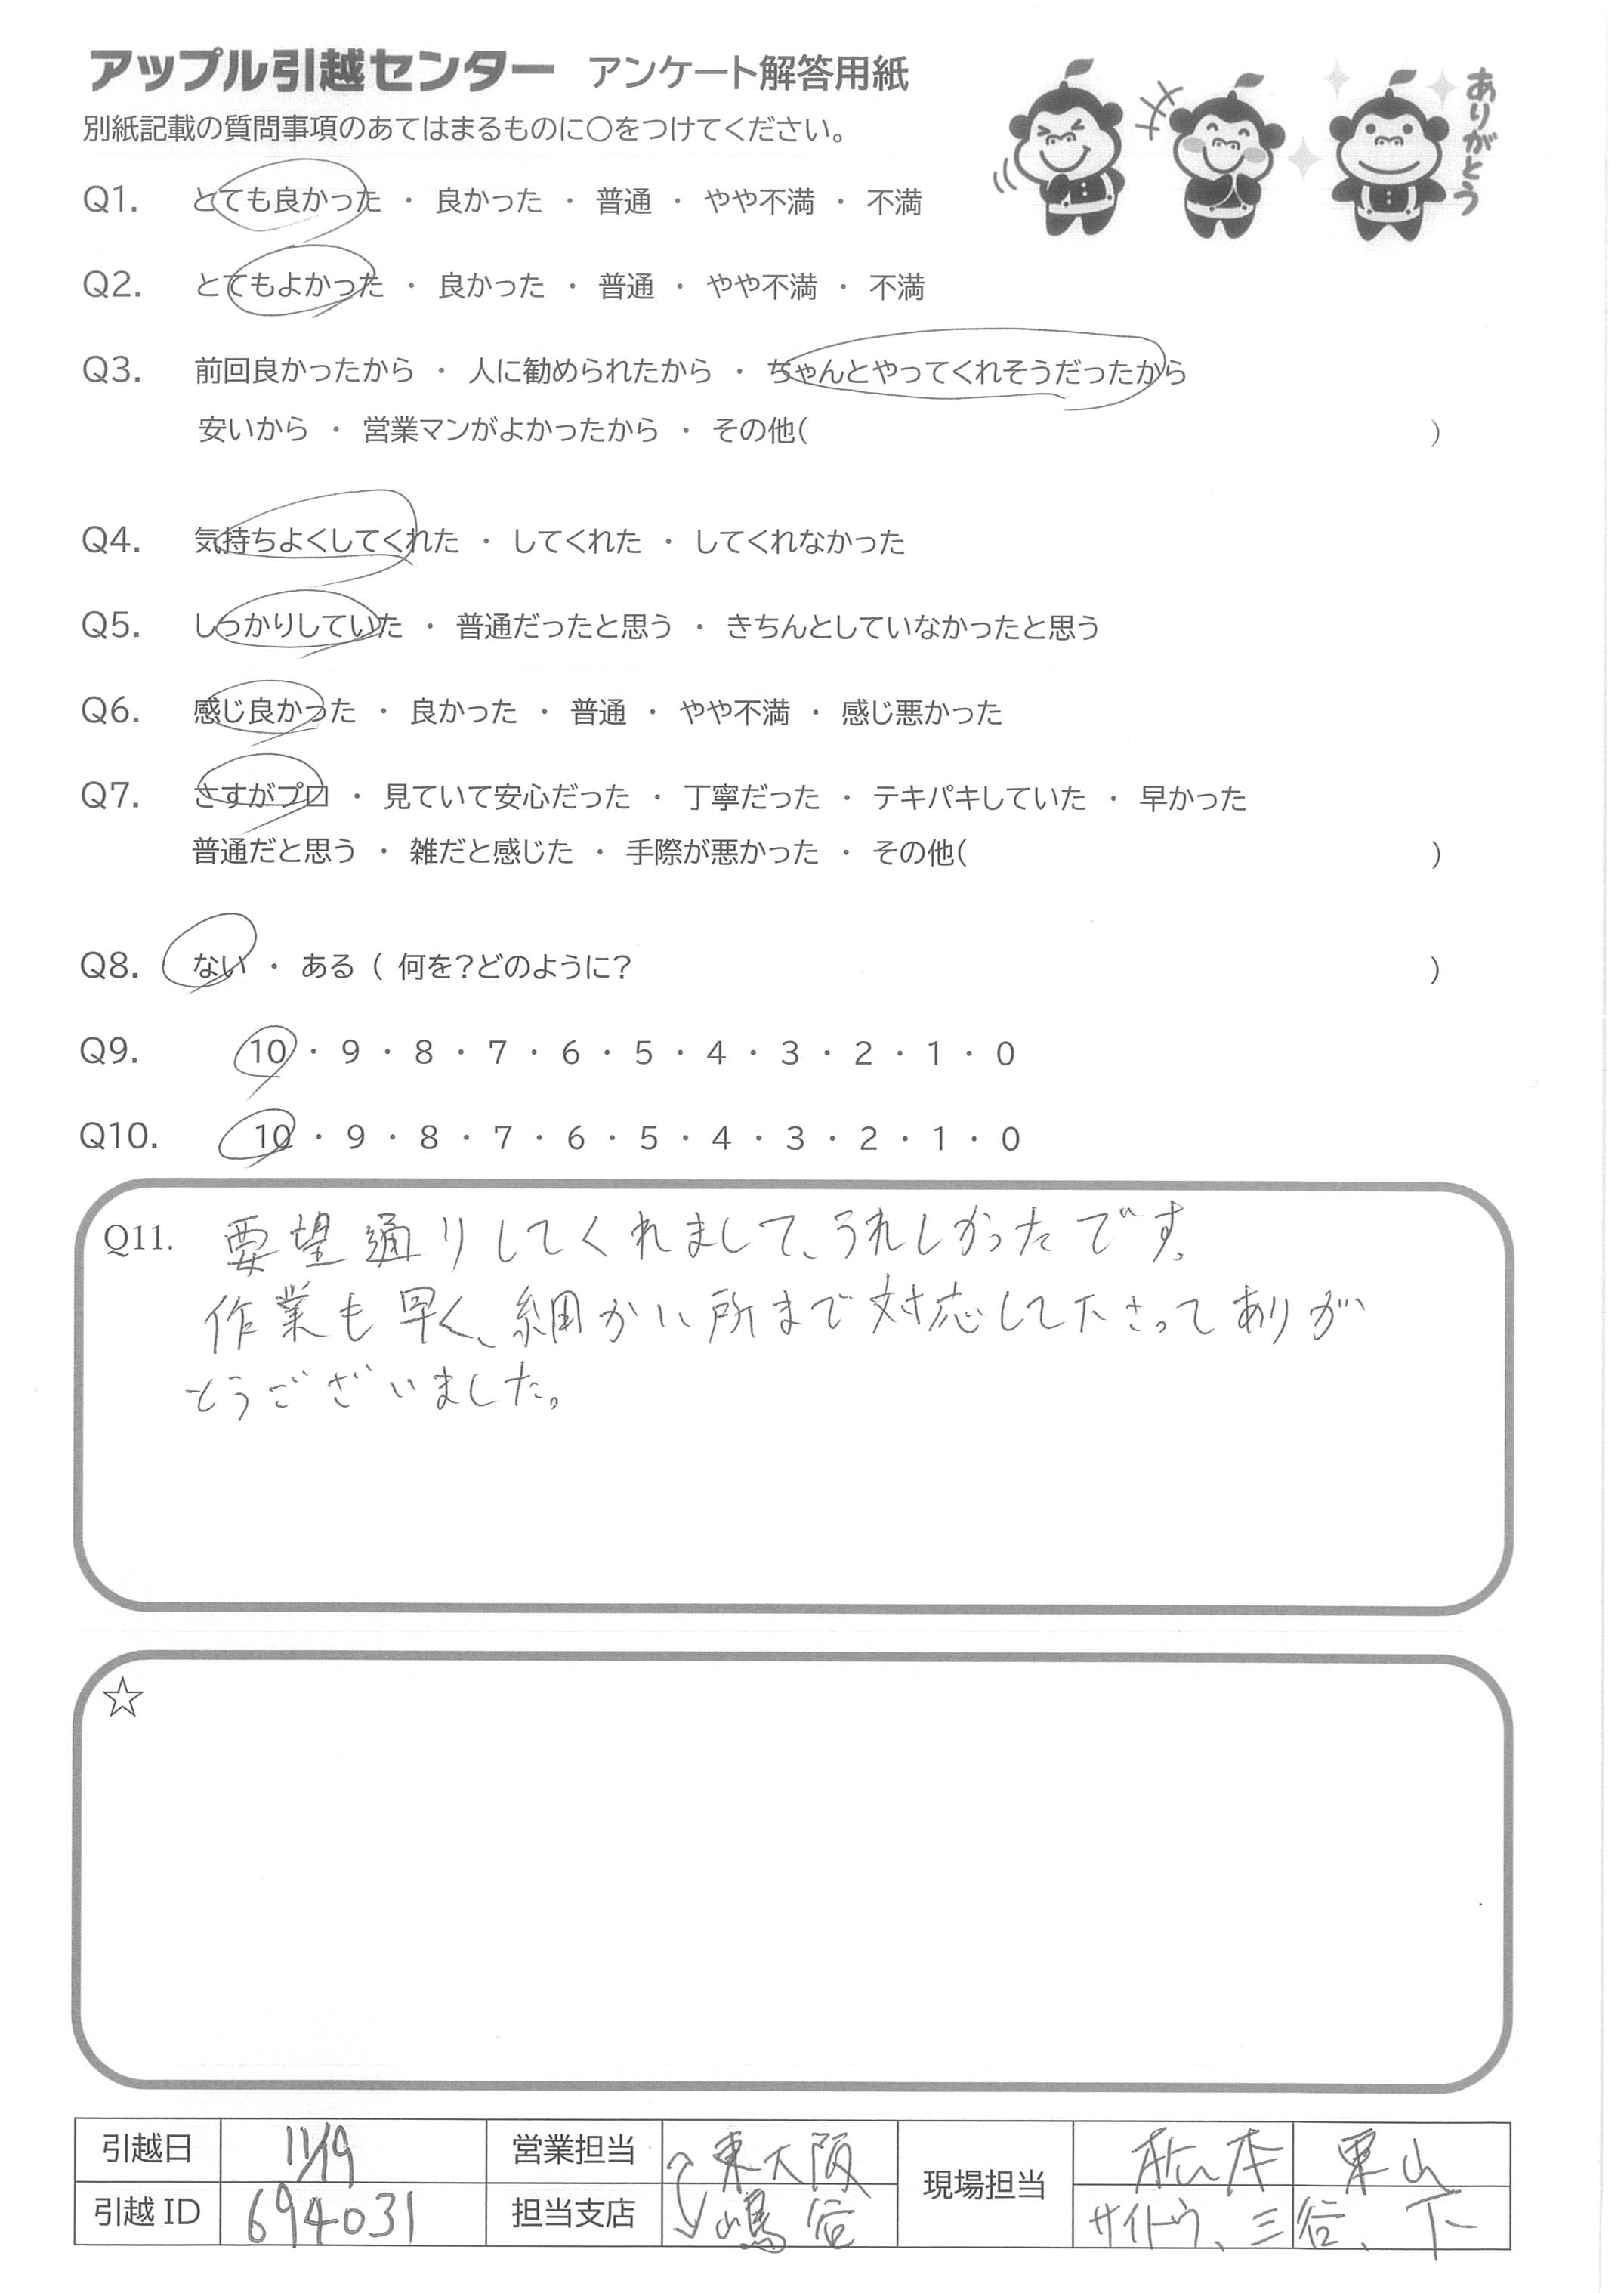 アップル引越センター アンケート解答用紙
別紙記載の質問事項のあてはまるものに○をつけてください。
ありがとう
Q1. とても良かった ・ 良かった ・ 普通 ・ やや不満 ・ 不満
Q2. とてもよかった ・ 良かった ・ 普通 ・ やや不満 ・ 不満
Q3. 前回良かったから ・ 人に勧められたから ・ ちゃんとやってくれそうだったから
安いから ・ 営業マンがよかったから ・ その他( )
Q4. 気持ちよくしてくれた ・ してくれた ・ してくれなかった
Q5. しっかりしていた ・ 普通だったと思う ・ きちんとしていなかったと思う
Q6. 感じ良かった ・ 良かった ・ 普通 ・ やや不満 ・ 感じ悪かった
Q7. さすがプロ ・ 見ていて安心だった ・ 丁寧だった ・ テキパキしていた ・ 早かった
普通だと思う ・ 雑だと感じた ・ 手際が悪かった ・ その他( )
Q8. ない ・ ある ( 何を?どのように? )
Q9. 10 ・ 9 ・ 8 ・ 7 ・ 6 ・ 5 ・ 4 ・ 3 ・ 2 ・ 1 ・ 0
Q10. 10 ・ 9 ・ 8 ・ 7 ・ 6 ・ 5 ・ 4 ・ 3 ・ 2 ・ 1 ・ 0
Q11. 要望通りしてくれまして、うれしかったです。
作業も早く、細かい所まで対応して下さってありが
とうございました。
☆
引越日 11/19 営業担当 東大阪 現場担当 松本 栗山
引越ID 694031 担当支店 嶋谷 サイトウ、三谷、下